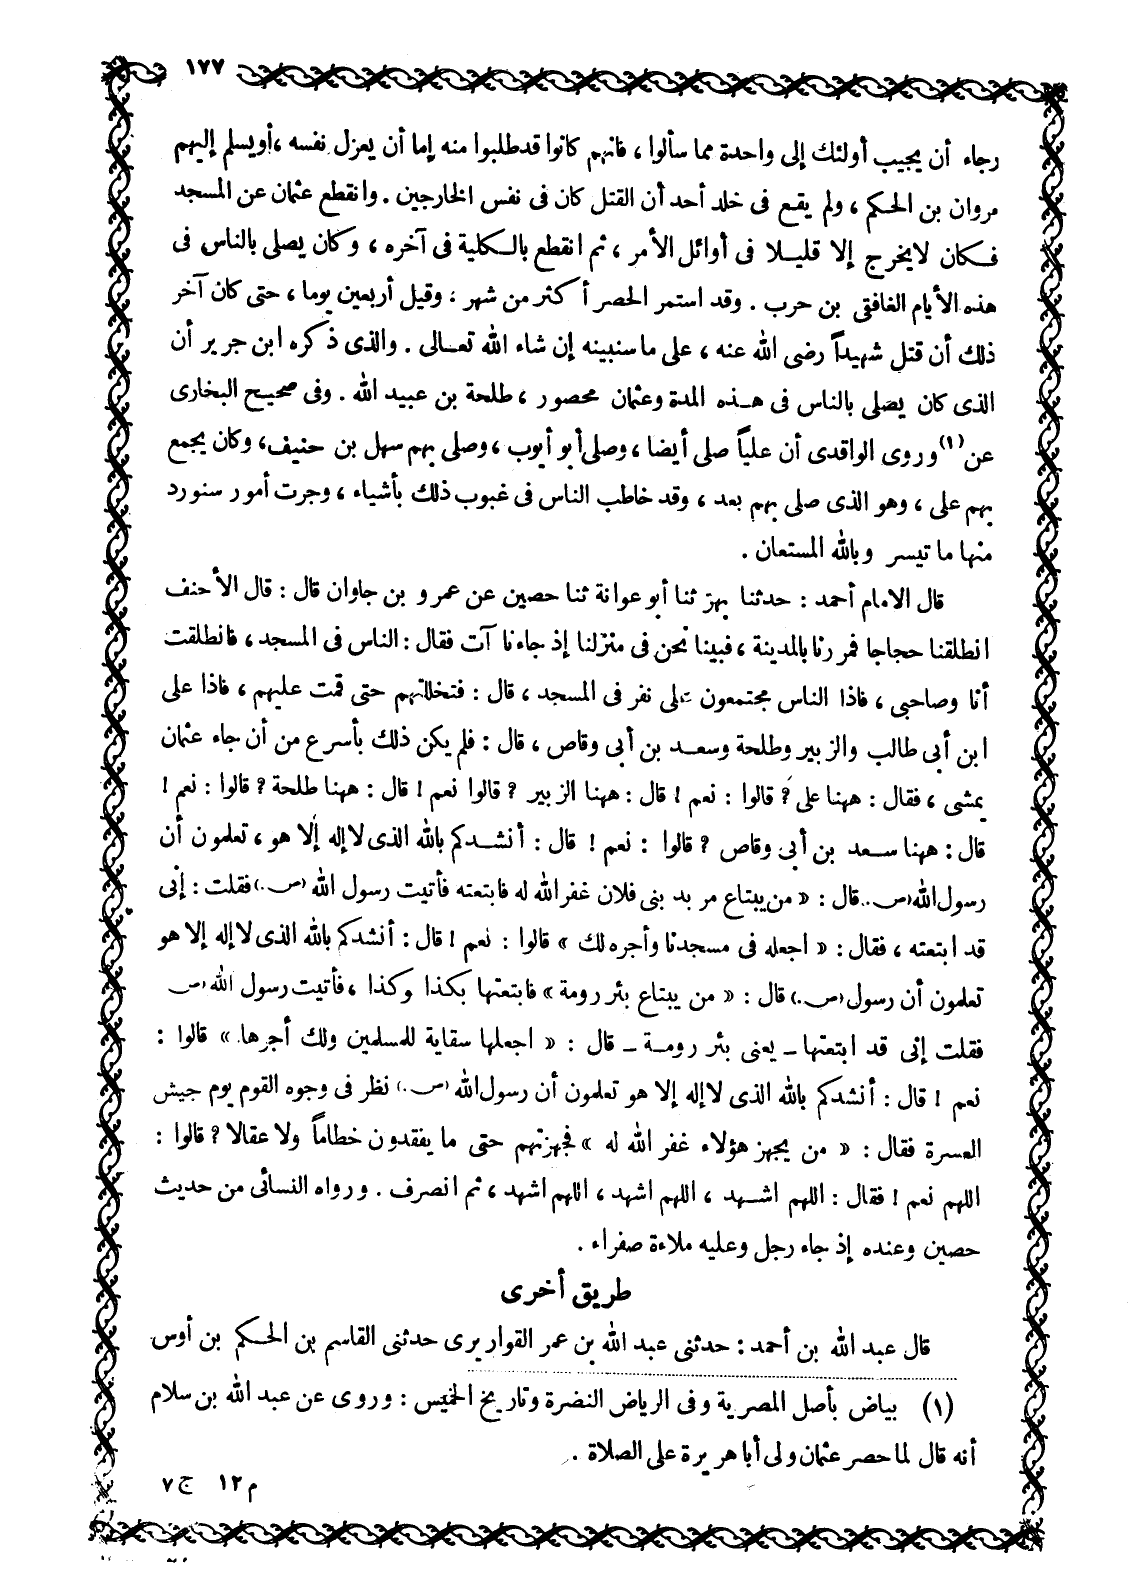 ١٧٧
رجاء أن يجيب أولئك إلى واحدة مما سألوا ، فانهم كانوا قد طلبوا منه إما أن يعزل نفسه ، أو يسلم إليهم
مروان بن الحكم ، ولم يقع فى خلد أحد أن القتل كان فى نفس الخارجين . وانقطع عثمان عن المسجد
فكان لا يخرج إلا قليلا فى أوائل الأمر ، ثم انقطع بالكلية فى آخره ، وكان يصلى بالناس فى
هذه الأيام الغافقى بن حرب . وقد استمر الحصر أكثر من شهر ، وقيل أربعين يوما ، حتى كان آخر
ذلك أن قتل شهيداً رضى الله عنه ، على ما سنبينه إن شاء الله تعالى . والذى ذكره ابن جرير أن
الذى كان يصلى بالناس فى هذه المدة وعثمان محصور ، طلحة بن عبيد الله . وفى صحيح البخارى
عن (١) وروى الواقدى أن علياً صلى أيضا ، وصلى أبو أيوب ، وصلى بهم سهل بن حنيف ، وكان يجمع
بهم على ، وهو الذى صلى بهم بعد ، وقد خاطب الناس فى غبوب ذلك بأشياء ، وجرت أمور سنورد
منها ما تيسر وبالله المستعان .
قال الامام أحمد : حدثنا بهز ثنا أبو عوانة ثنا حصين عن عمرو بن جاوان قال : قال الأحنف
انطلقنا حجاجا فمررنا بالمدينة ، فبينا نحن فى منزلنا إذ جاءنا آت فقال : الناس فى المسجد ، فانطلقت
أنا وصاحبى ، فاذا الناس مجتمعون على نفر فى المسجد ، قال : فتخللتهم حتى قمت عليهم ، فاذا على
ابن أبى طالب والزبير وطلحة وسعد بن أبى وقاص ، قال : فلم يكن ذلك بأسرع من أن جاء عثمان
يمشى ، فقال : ههنا على ? قالوا : نعم ! قال : ههنا الزبير ? قالوا نعم ! قال : ههنا طلحة ? قالوا : نعم !
قال : ههنا سعد بن أبى وقاص ? قالوا : نعم ! قال : أنشدكم بالله الذى لا إله إلا هو ، تعلمون أن
رسول الله (ص.) قال : « من يبتاع مربد بنى فلان غفر الله له فابتعته فأتيت رسول الله (ص.) فقلت : إنى
قد ابتعته ، فقال : « اجعله فى مسجدنا وأجره لك » قالوا : نعم ! قال : أنشدكم بالله الذى لا إله إلا هو
تعلمون أن رسول (ص.) قال : « من يبتاع بئر رومة » فابتعتها بكذا وكذا ، فأتيت رسول الله (ص
فقلت إنى قد ابتعتها ـ يعنى بئر رومة ـ قال : « اجعلها سقاية للمسلمين ولك أجرها » قالوا :
نعم ! قال : أنشدكم بالله الذى لا إله إلا هو تعلمون أن رسول الله (ص.) نظر فى وجوه القوم يوم جيش
العسرة فقال : « من يجهز هؤلاء غفر الله له » فجهزتهم حتى ما يفقدون خطاماً ولا عقالا ? قالوا :
اللهم نعم ! فقال : اللهم اشهد ، اللهم اشهد ، اللهم اشهد ، ثم انصرف . ورواه النسائى من حديث
حصين وعنده إذ جاء رجل وعليه ملاءة صفراء .
طريق أخرى
قال عبد الله بن أحمد : حدثنى عبد الله بن عمر القواريرى حدثنى القاسم بن الحكم بن أوس
(١) بياض بأصل المصرية وفى الرياض النضرة وتاريخ الخميس : وروى عن عبد الله بن سلام
أنه قال لما حصر عثمان ولى أبا هريرة على الصلاة .
م ١٢ ج ٧